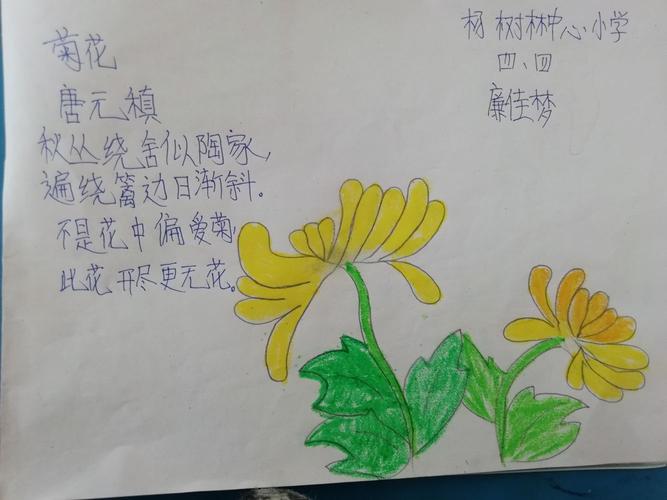 菊花
唐元稹
秋丛绕舍似陶家，
遍绕篱边日渐斜。
不是花中偏爱菊，
此花开尽更无花。
杨树林中心小学
四、四
廉佳梦